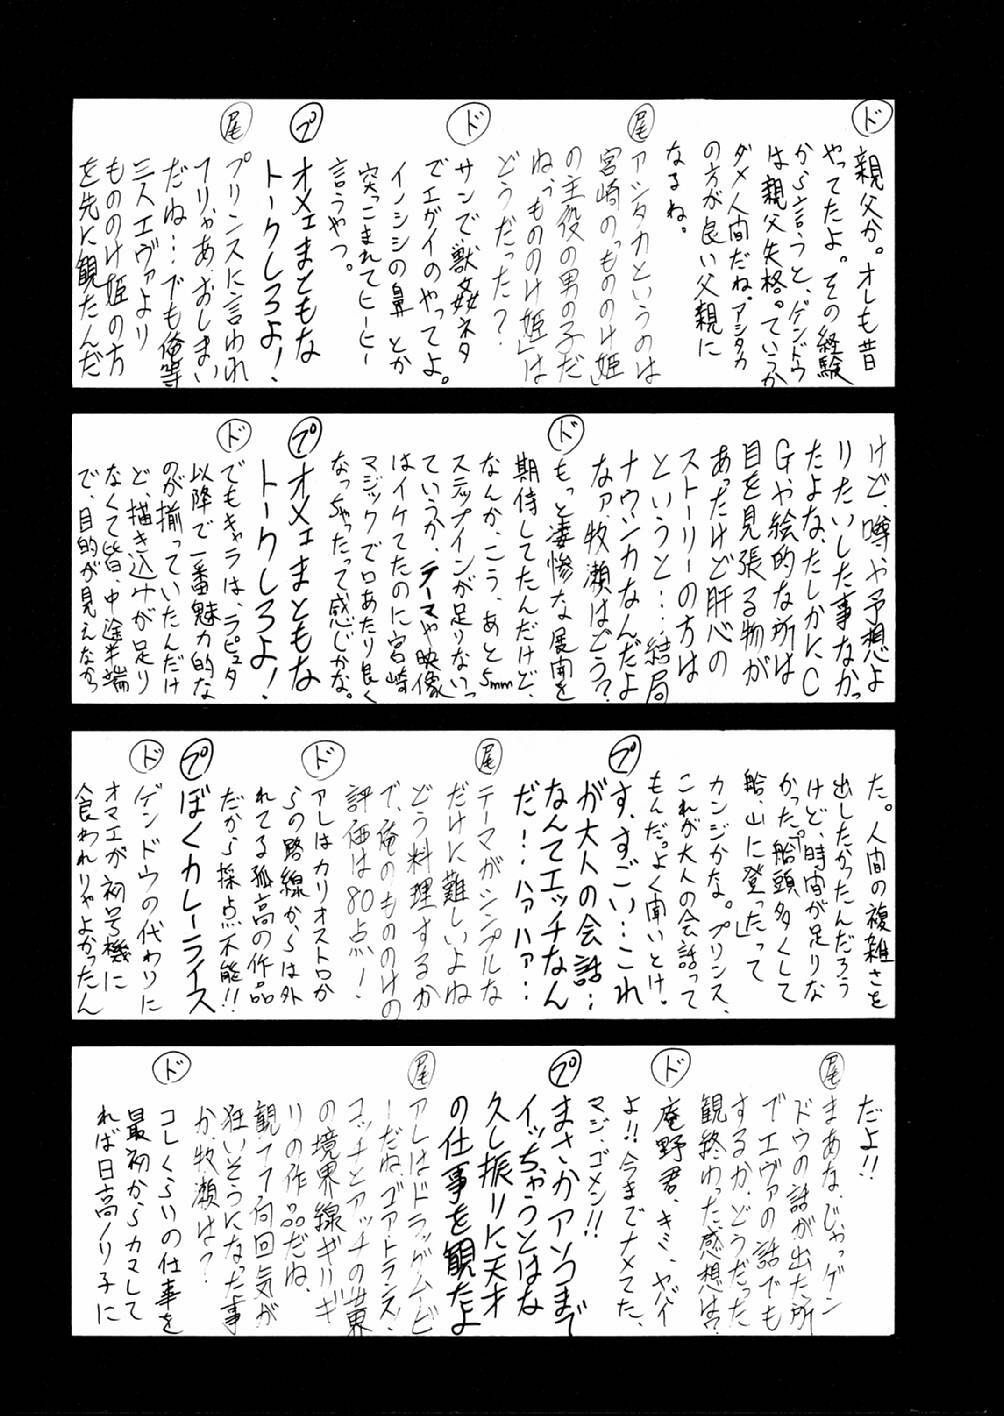 ド
親父か。オレも昔
やってたよ。その経験
から言うと、ゲンドウ
は親父失格。ていうか
ダメ人間だね。アシタカ
の方が良い父親に
なるね。
尾
アシタカというのは
宮崎の「もののけ姫」
の主役の男の子だ
ね。「もののけ姫」は
どうだった?
ド
サンで、獣姦ネタ
でエグイのやってよ。
イノシシの鼻とか
突っこまれてヒーヒー
言うやつ。
プ
オメェまともな
トークしろよ!
尾
プリンスに言われ
たりゃあ、おしまい
だね…でも俺等
三人エヴァより
もののけ姫の方
を先に観たんだ
けど、噂や予想よ
りたいした事なかっ
たよな、たしかにC
Gや絵的な所は
目を見張る物が
あったけど肝心の
ストーリーの方は
というと…結局
ナウシカなんだよ
なァ、牧瀬はどう?
ド
もっと凄惨な展開を
期待してたんだけど、
なんか、こう、あと5mm
ステップインが足りないっ
ていうか、テーマや映像
はイケてたのに宮崎
マジックで口あたり良く
なっちゃったって感じかな。
プ
オメェまともな
トークしろよ!
ド
でもキャラは、ラピュタ
以降で一番魅力的な
のが揃っていたんだけ
ど、描き込みが足り
なくて皆、中途半端
で、目的が見えなかっ
た。人間の複雑さを
出したかったんだろう
けど、時間が足りな
かった。「船頭多くして
船、山に登った」って
カンジかな。プリンス、
これが大人の会話って
もんだ。よく聞いとけ。
プ
す、すごい…これ
が大人の会話…
なんてエッチなん
だ!…ハァハァ…
尾
テーマがシンプルな
だけに難しいよね
どう料理するか
で、俺のもののけの
評価は80点!
ド
アレはカリオストロか
らの路線からは外
れてる孤高の作品
だから採点不能!!
プ
ぼくカレーライス
ド
ゲンドウの代わりに
オマエが初号機に
食われりゃよかったん
だよ!!
尾
まあな、じゃっゲン
ドウの話が出た所
でエヴァの話でも
するか、どうだった
観終わった感想は?
ド
庵野君、キミ、ヤバイ
よ!!今までナメてた、
マジ、ゴメン!!
プ
まさかアソコまで
イッちゃうとはな
久し振りに天才
の仕事を観たよ
尾
アレはドラッグムービ
ーだね、ゴアトランス、
コッチとアッチの世界
の境界線ギリギ
リの作品だね、
観てて何回気が
狂いそうになった事
か、牧瀬は?
ド
コレくらいの仕事を
最初からカマして
れば日高ノリ子に